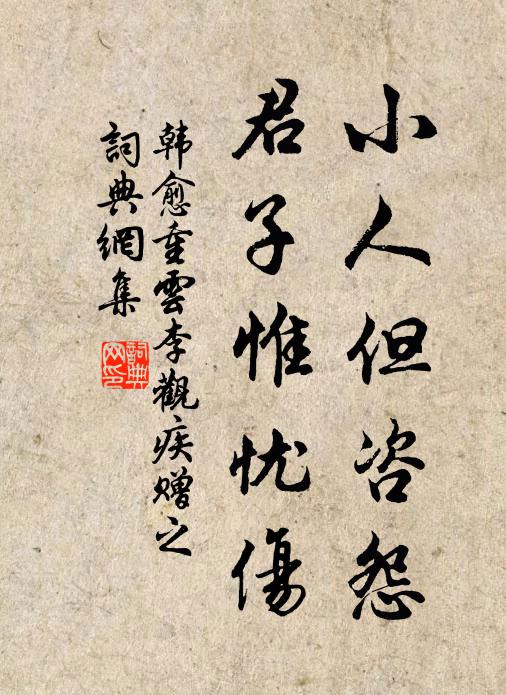 小人但咨怨
君子惟忧傷
韩愈重雲李觀疾赠之
詞典網集
詞典网印